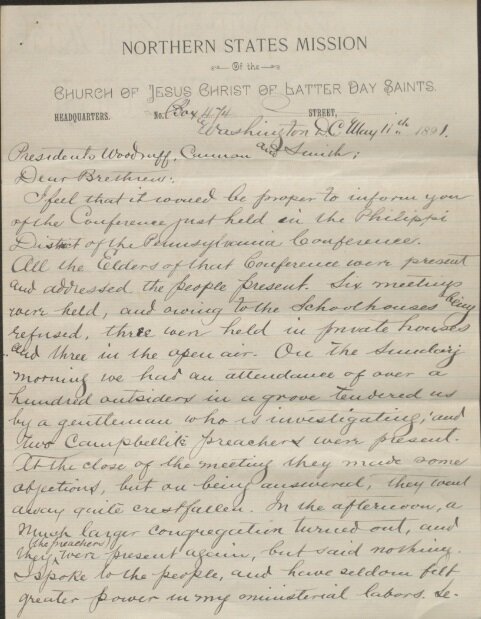 NORTHERN STATES MISSION
Of the
CHURCH OF JESUS CHRIST OF LATTER DAY SAINTS.
HEADQUARTERS. No. Box 474 STREET,
Washington D.C. May 11th 1891.
Presidents Woodruff, Cannon and Smith;
Dear Brethren:
I feel that it would be proper to inform you
of the Conference just held in the Philippi
District of the Pennsylvania Conference.
All the Elders of that Conference were present
and addressed the people present. Six meetings
were held, and owing to the Schoolhouses being
refused, three were held in private houses
and three in the open air. On the Sunday
morning we had an attendance of over a
hundred outsiders in a grove tendered us
by a gentleman who is investigating, and
two Campbellite preachers were present.
At the close of the meeting they made some
objections, but on being answered, they went
away quite crestfallen. In the afternoon, a
much larger congregation turned out, and
they (the preachers) were present again, but said nothing.
I spoke to the people, and have seldom felt
greater power in my ministerial labors. Se-